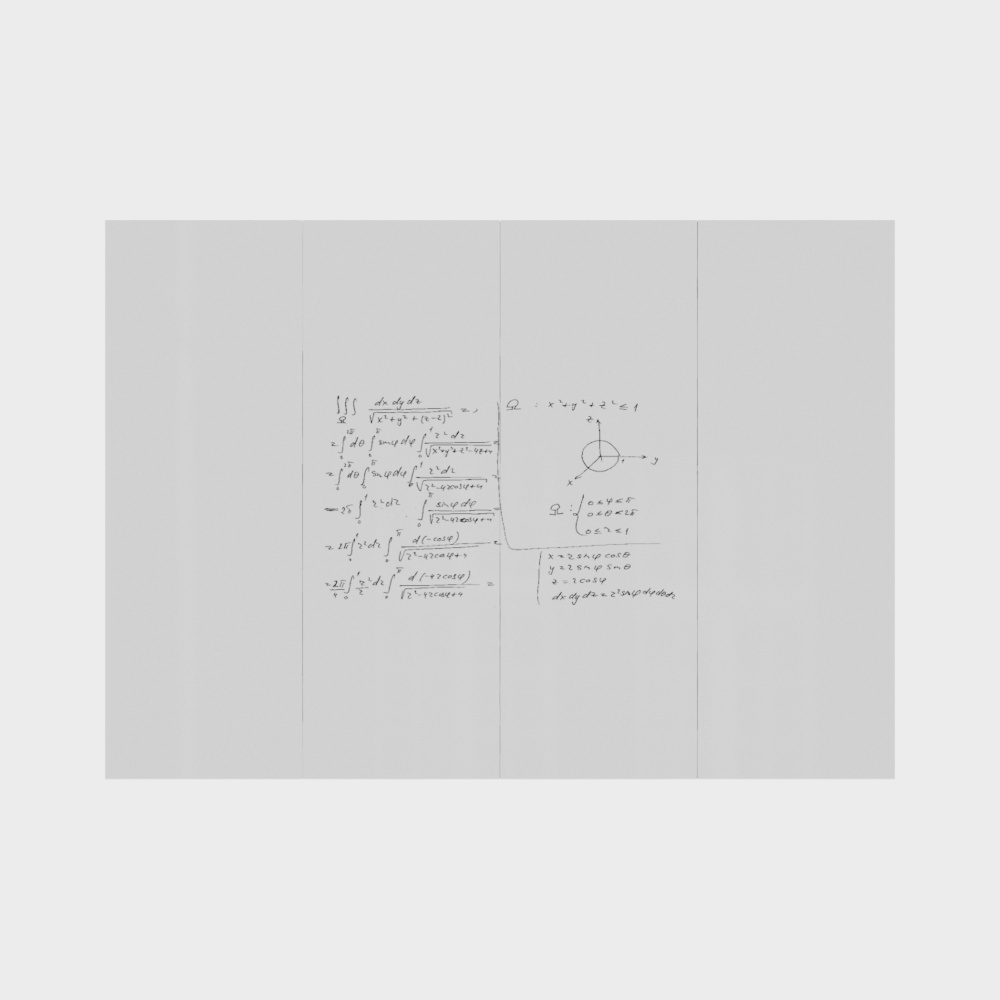 ∭_Ω dx dy dz / √(x²+y²+(z-2)²) =,
= ∫₀^2π dθ ∫₀^π sinφ dφ ∫₀^1 r² dr / √(x²+y²+z²-4z+4) =
= ∫₀^2π dθ ∫₀^π sinφ dφ ∫₀^1 r² dr / √(r²-4r cosφ+4) =
= 2π ∫₀^1 r² dr · ∫₀^π sinφ dφ / √(r²-4r cosφ+4) =
= 2π ∫₀^1 r² dr ∫₀^π d(-cosφ) / √(r²-4r cosφ+4) =
= 2π/4 ∫₀^1 r²/r dr ∫₀^π d(-4r cosφ) / √(r²-4r cosφ+4) =
Ω : x²+y²+z² ≤ 1
z
y
x
Ω : { 0 ≤ φ ≤ π
0 ≤ θ ≤ 2π
0 ≤ r ≤ 1
x = r sinφ cosθ
y = r sinφ sinθ
z = r cosφ
dx dy dz = r² sinφ dφ dθ dr